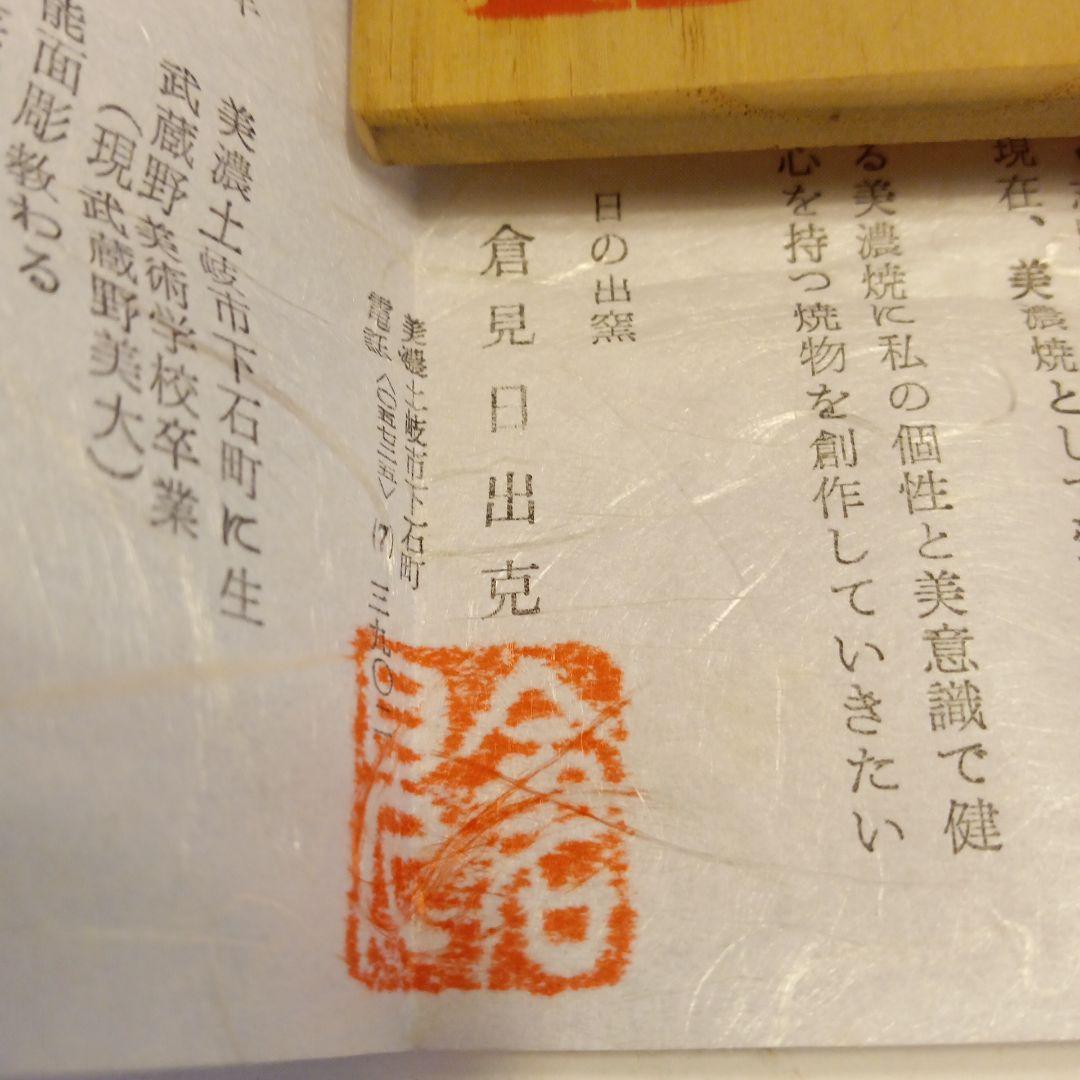 現在、美濃焼として
る美濃焼に私の個性と美意識で健
心を持つ焼物を創作していきたい
日の出窯
倉見日出克
美濃土岐市下石町
電話〈〇五七二五〉(7)三九〇二
美濃土岐市下石町に生
武蔵野美術学校卒業
(現武蔵野美大)
能面彫教わる